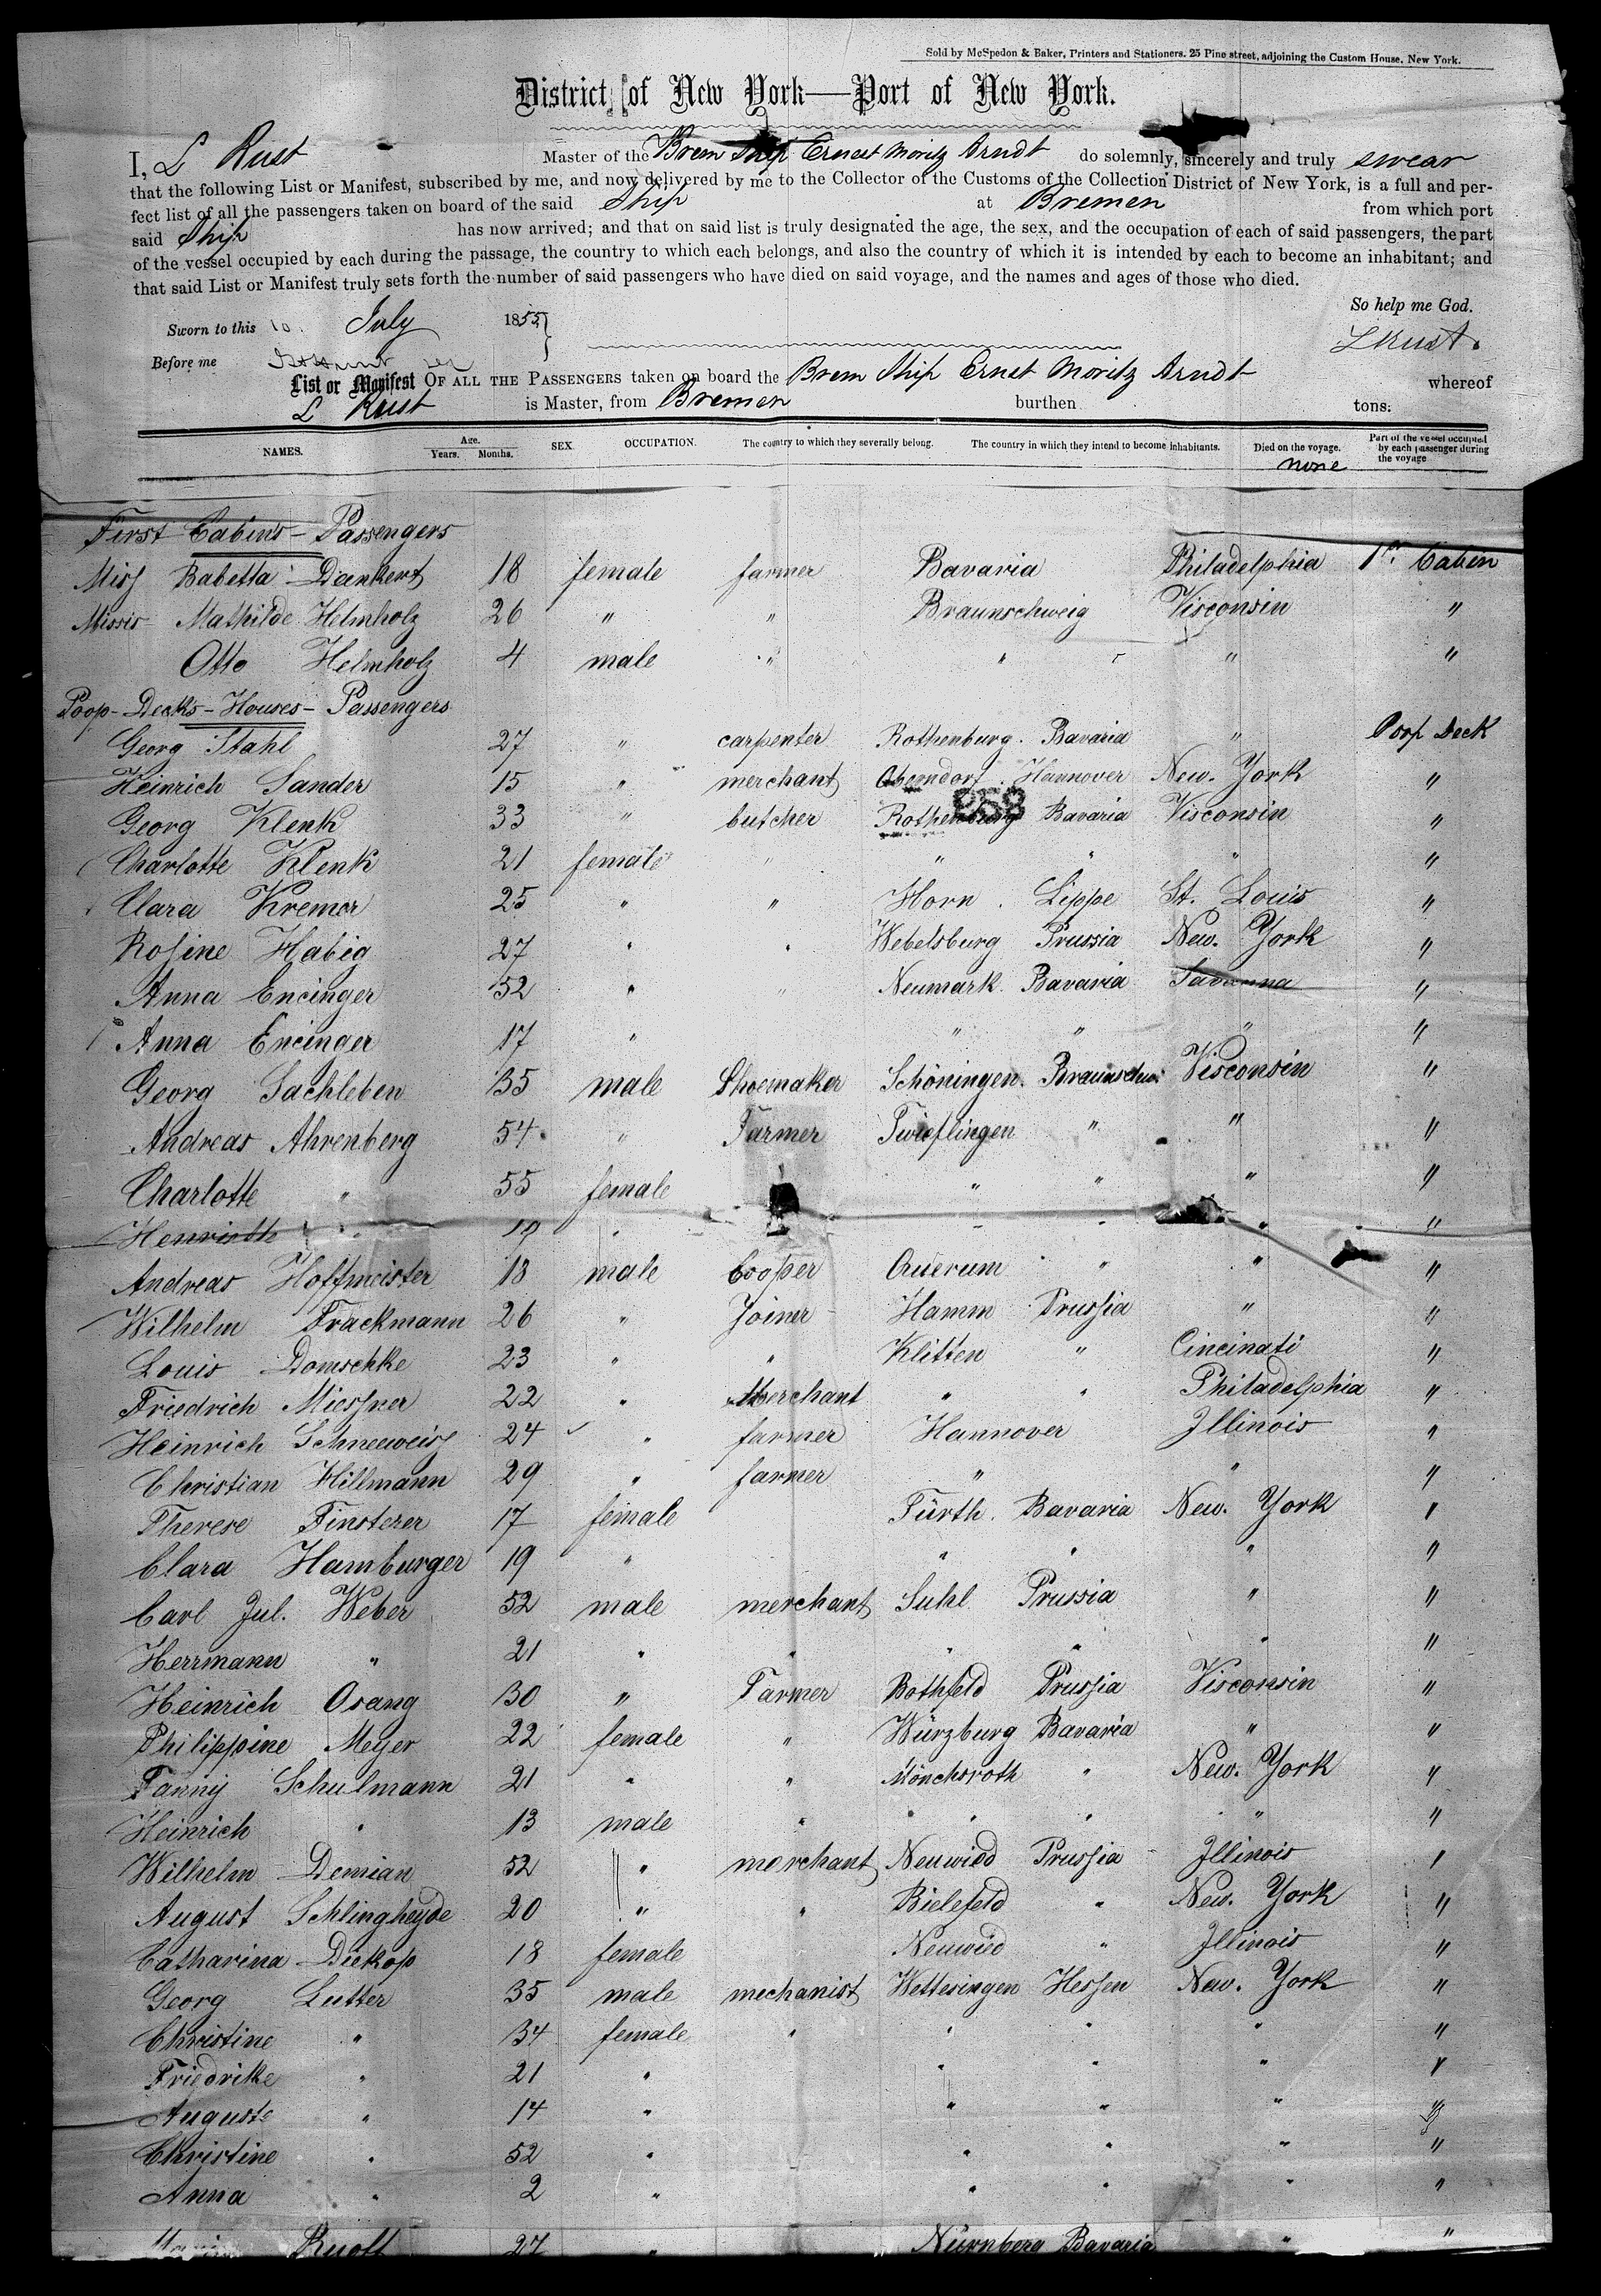 Sold by McSpedon & Baker, Printers and Stationers. 25 Pine street, adjoining the Custom House. New York.
District of New York—Port of New York.
I, L Rust Master of the Brem Ship Ernest Moritz Arndt do solemnly, sincerely and truly swear
that the following List or Manifest, subscribed by me, and now delivered by me to the Collector of the Customs of the Collection District of New York, is a full and per-
fect list of all the passengers taken on board of the said Ship at Bremen from which port
said Ship has now arrived; and that on said list is truly designated the age, the sex, and the occupation of each of said passengers, the part
of the vessel occupied by each during the passage, the country to which each belongs, and also the country of which it is intended by each to become an inhabitant; and
that said List or Manifest truly sets forth the number of said passengers who have died on said voyage, and the names and ages of those who died.
So help me God.
Sworn to this 10. July 1855
L Rust.
Before me
List or Manifest OF ALL THE PASSENGERS taken on board the Brem Ship Ernst Moritz Arndt whereof
L Rust is Master, from Bremen burthen tons.
NAMES. Age. Years. Months. SEX OCCUPATION. The country to which they severally belong. The country in which they intend to become inhabitants. Died on the voyage. Part of the vessel occupied by each passenger during the voyage
none
First Cabins-Passengers
Miss Babetta Dankert 18 female farmer Bavaria Philadelphia 1st Caben
Missis Mathilde Helmholz 26 " " Braunschweig Visconsin "
Otto Helmholz 4 male " " " "
Poop-Decks-Houses-Passengers
Georg Stahl 27 " carpenter Rothenburg. Bavaria " Poop Deck
Heinrich Sander 15 " merchant Oberndorf. Hannover New. York "
258
Georg Klenk 33 " butcher Rothenburg Bavaria Visconsin "
Charlotte Klenk 21 female " " " " "
Clara Kremer 25 " " Horn. Lippe St. Louis "
Rosine Habig 27 " " Webelsburg Prussia New. York "
Anna Encinger 52 " " Neumark. Bavaria Savanna "
Anna Encinger 17 " " " " "
Georg Sachleben 35 male Shoemaker Schöningen. Braunschw. Visconsin "
Andreas Ahrenberg 54 " Farmer Twieflingen " " "
Charlotte " 55 female " " " "
Henriette " 19 " " " " "
Andreas Hoffmeister 18 male Cooper Querum " " "
Wilhelm Frackmann 26 " Joiner Hamm Prussia " "
Louis Domschke 23 " " Klitten " Cincinati "
Friedrich Miessner 22 " Merchant " " Philadelphia "
Heinrich Schneeweiss 24 " farmer Hannover Illinois "
Christian Hillmann 29 " farmer " " "
Therese Finsterer 17 female Fürth. Bavaria New. York "
Clara Hamburger 19 " " " " "
Carl Jul. Weber 52 male merchant Suhl Prussia " "
Herrmann " 21 " " " " " "
Heinrich Osang 30 " Farmer Bothfeld Prussia Visconsin "
Philippine Meyer 22 female " Würzburg Bavaria " "
Fanny Schulmann 21 " " Mönchsroth " New. York "
Heinrich " 13 male " " " " "
Wilhelm Demian 52 " merchant Neuwied Prussia Illinois "
August Schlingheyde 20 " " Bielefeld " New. York "
Catharina Diekop 18 female Neuwied " Illinois "
Georg Lutter 35 male mechanist Wettesingen Hessen New. York "
Christine " 34 female " " " " "
Friedrike " 21 " " " " "
Auguste " 14 " " " " "
Christine " 52 " " " " "
Anna " 2 " " " " "
Ruoff 27 " Nürnberg Bavaria " "